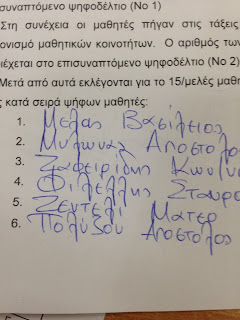 συναπτόμενο ψηφοδέλτιο (Νο 1)
Στη συνέχεια οι μαθητές πήγαν στις τάξεις
ονισμό μαθητικών κοινοτήτων. Ο αριθμός των
ιέχεται στο επισυναπτόμενο ψηφοδέλτιο (Νο 2)
Μετά από αυτά εκλέγονται για το 15/μελές μαθη
ς κατά σειρά ψήφων μαθητές:
1. Μελας Βασίλειος
2. Μυλωνας Αποστολο
3. Ζαφειρίδης Κων/ν
4. Φιλέλλης Σταυρο
5. Ζεντέλι Ματερ
6. Πολύζου Αποστολος